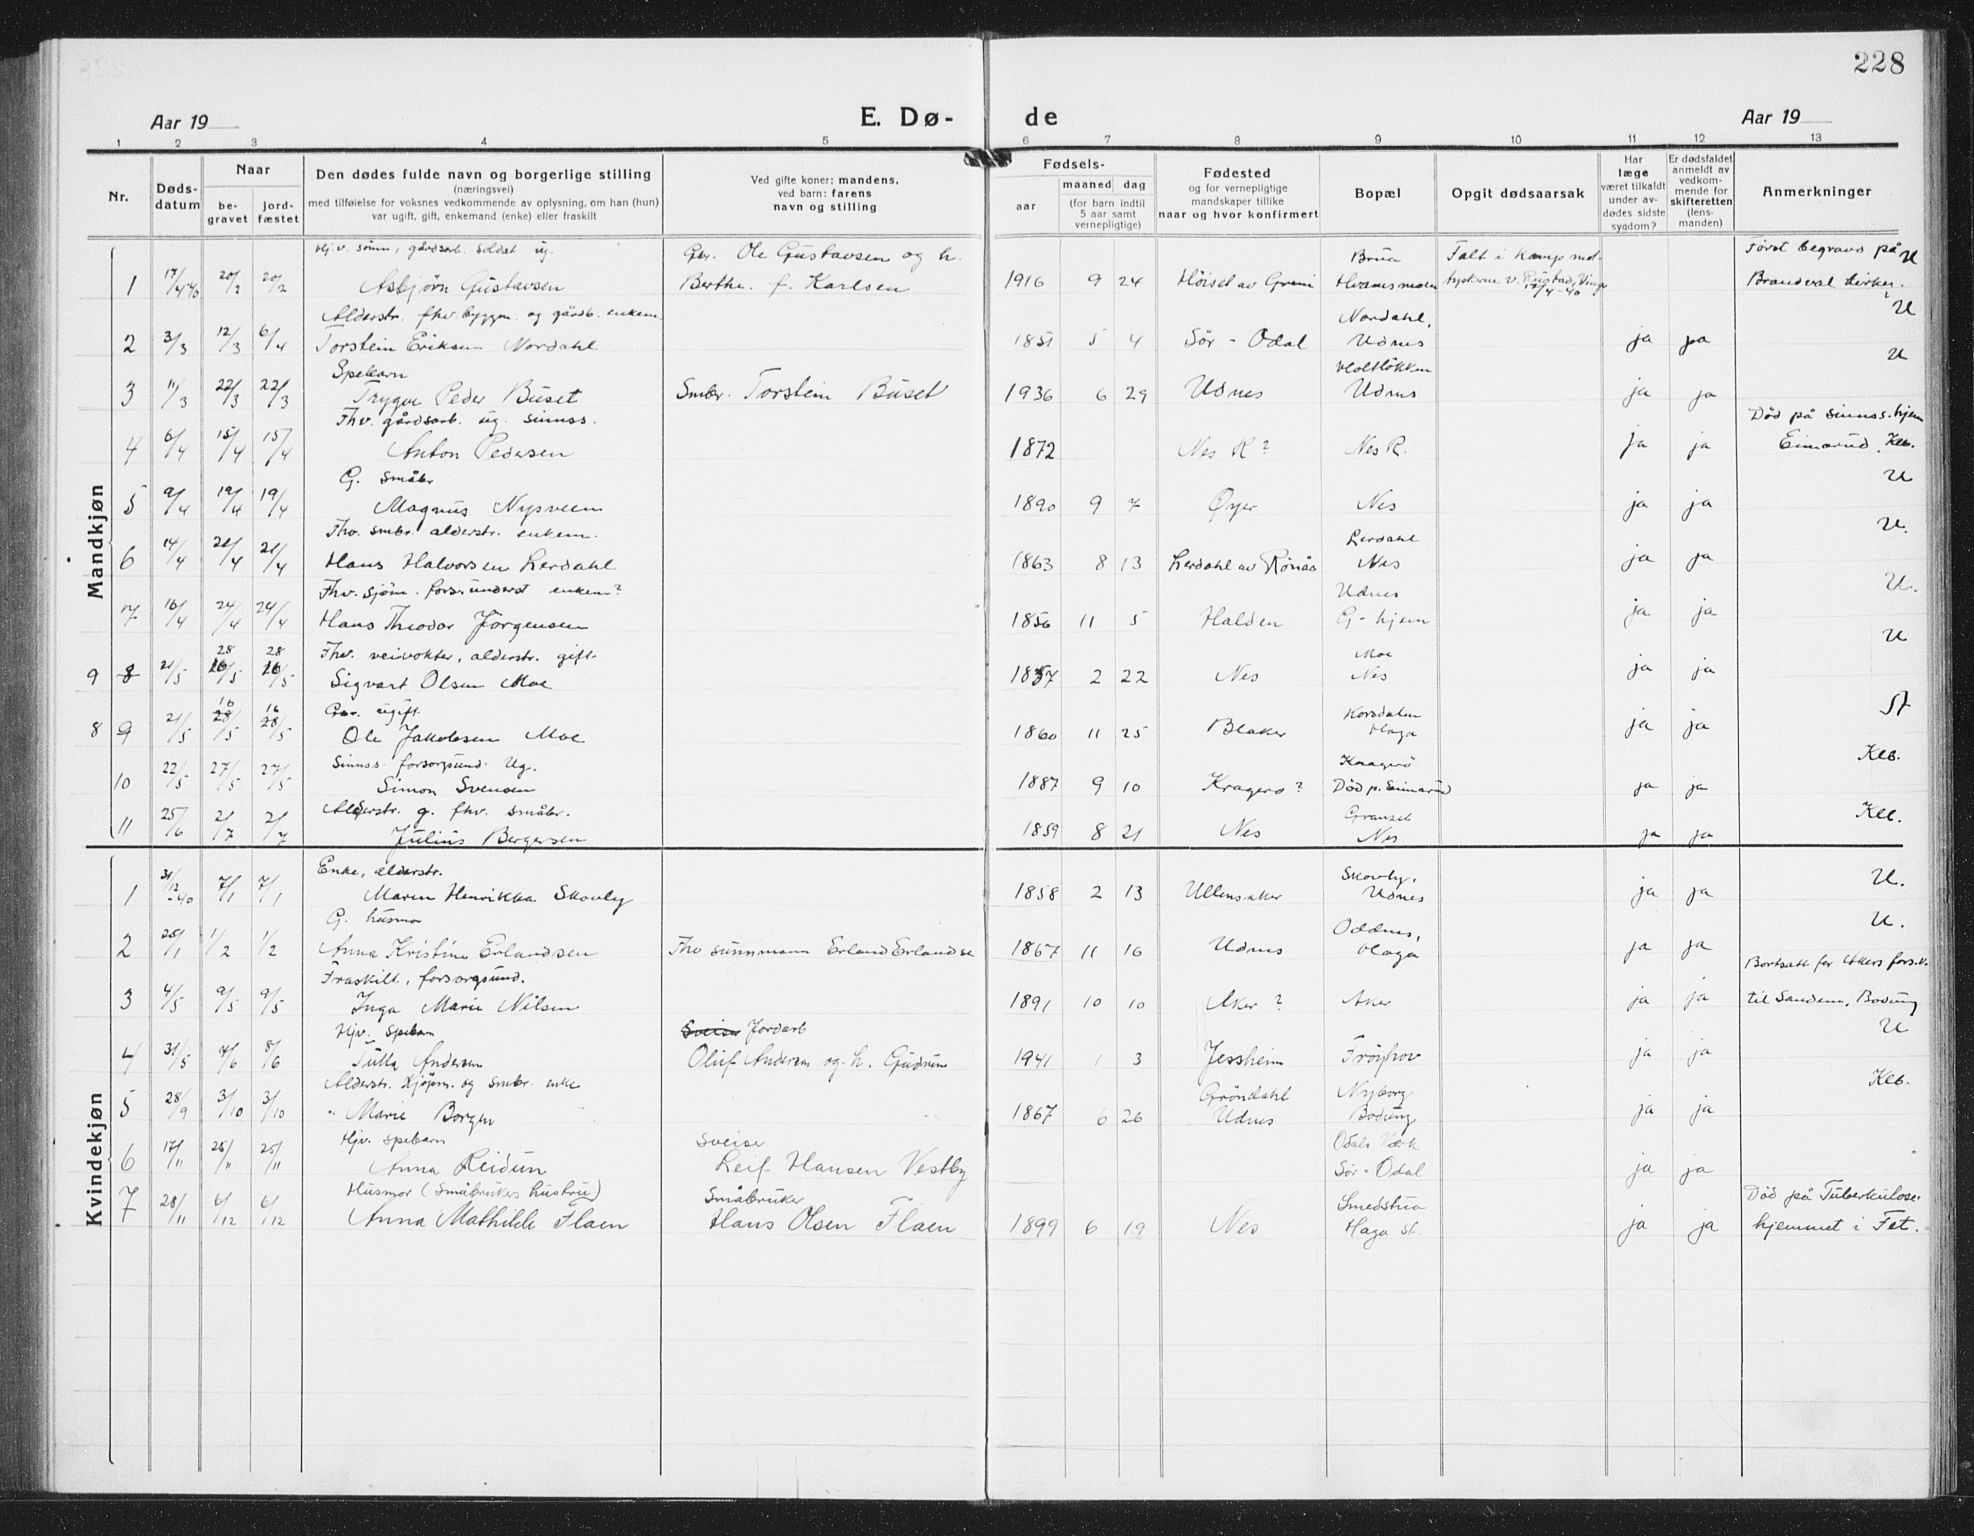 228
Aar 19
E. Dø-
de
Aar 19
1 2 3 4 5 6 7 8 9 10 11 12 13
Nr.
Døds-
datum
Naar
be-
gravet
jord-
fæstet
Den dødes fulde navn og borgerlige stilling
(næringsvei)
med tilføielse for voksnes vedkommende av oplysning, om han (hun)
var ugift, gift, enkemand (enke) eller fraskilt
Ved gifte koner: mandens,
ved barn: farens
navn og stilling
Fødsels-
aar
maaned dag
(for barn indtil
5 aar samt
vernepligtige)
Fødested
og for vernepligtige
mandskaper tillike
naar og hvor konfirmert
Bopæl
Opgit dødsaarsak
Har
læge
været tilkaldt
under av-
dødes sidste
sygdom?
Er dødsfaldet
anmeldt av
vedkom-
mende for
skifteretten
(lens-
manden)
Anmerkninger
Mandkjøn
Hj.v. sønn, gårdsarb. soldat ug. Gbr. Ole Gustavsen og h. Brua Falt i kamp mot Først begravd på U
1 17/4 40 20/2 20/2 Asbjørn Gustavsen Berthe f. Karlsen 1916 9 24 Høiset av Greni Hvamsmoen tyskerne v. 17/4-40 Brandval kirkeg.
Alderstr. fhv. byggm. og gårdb. enkem. Nordahl, U
2 3/3 12/3 6/4 Torstein Eriksen Nordahl 1851 5 4 Sør-Odal Udnes ja ja
Spebarn Holtløkken U
3 11/3 22/3 22/3 Trygve Peder Buset Smbr. Torstein Buset 1936 6 29 Udnes Udnes ja ja
Fhv. gårdsarb. ug. sinnss. Død på sinnss.hjem
4 6/4 15/4 15/4 Anton Pedersen 1872 Nes R? Nes R. ja ja Eimarud. Klb.
G. småbr U
5 9/4 19/4 19/4 Magnus Nysveen 1890 9 7 Øyer Nes ja ja
Fhv. smbr. alderstr. enkem. Lerdahl U.
6 14/4 21/4 21/4 Hans Halvorsen Lerdahl 1863 8 13 Lerdahl av Rönås Nes ja ja
Fhv. sjöm. fors.underst enkem? Udnes U.
7 16/4 24/4 24/4 Hans Theodor Jörgensen 1856 11 5 Halden G-hjem ja ja
28 28 Fhv. veivokter, alderstr. gift Moe U
9 8 21/5 16/5 16/5 Sigvart Olsen Moe 1857 2 22 Nes Nes ja ja
16 16 Gbr. ugift. Korsdalen St
8 9 21/5 28/5 28/5 Ole Jakobsen Moe 1860 11 25 Blaker Haga ja ja
Sinnss. forsorgsund. Ug. Kragerö Klb.
10 22/5 27/5 27/5 Simon Svensen 1887 9 10 Kragerø? Död p. Eimarud ja ja
Alderstr. g. fhv. småbr. Granseb Klb.
11 25/6 2/7 2/7 Julius Bergersen 1859 8 21 Nes Nes ja ja
Kvindekjøn
Enke, alderstr. Skovly, U.
1 31/12-40 7/1 7/1 Maren Henrikka Skovly 1858 2 13 Ullensaker Udnes ja ja
G. husmor Oddnes, U.
2 25/1 1/2 1/2 Anna Kristine Erlandsen Fhv sunnmann Erland Erlandse 1867 11 16 Udnes Haga ja ja
Fraskilt, forsorgsund. Bortsatt før Akers fors.v.
3 4/5 9/5 9/5 Inga Marie Nilsen 1891 10 10 Aker? Aker ja ja til Sandem, Bodung
Hjv. Spebarn Sveiser Jordarb U
4 31/5 7/6 8/6 Tulla Andersen Oluf Andersen og h. Gudrun 1941 1 3 Jessheim Fröyhov ja ja
Alderstr. Kjøpm. og smbr. enke Gröndahl Nyborg Klb.
5 28/9 3/10 3/10 Marie Borgen 1867 6 26 Udnes Bodung ja ja
Hjv. spebarn Sveiser Odals Værk
6 17/11 25/11 25/11 Anna Reidun Leif Hansen Vestby Sør-Odal ja ja
Husmor (Småbrukers hustru) Småbruker Smedstua Død på Tuberkulose-
7 28/11 6/12 6/12 Anna Mathilde Flaen Hans Olsen Flaen 1899 6 19 Nes Haga st. ja ja hjemmet i Fet.